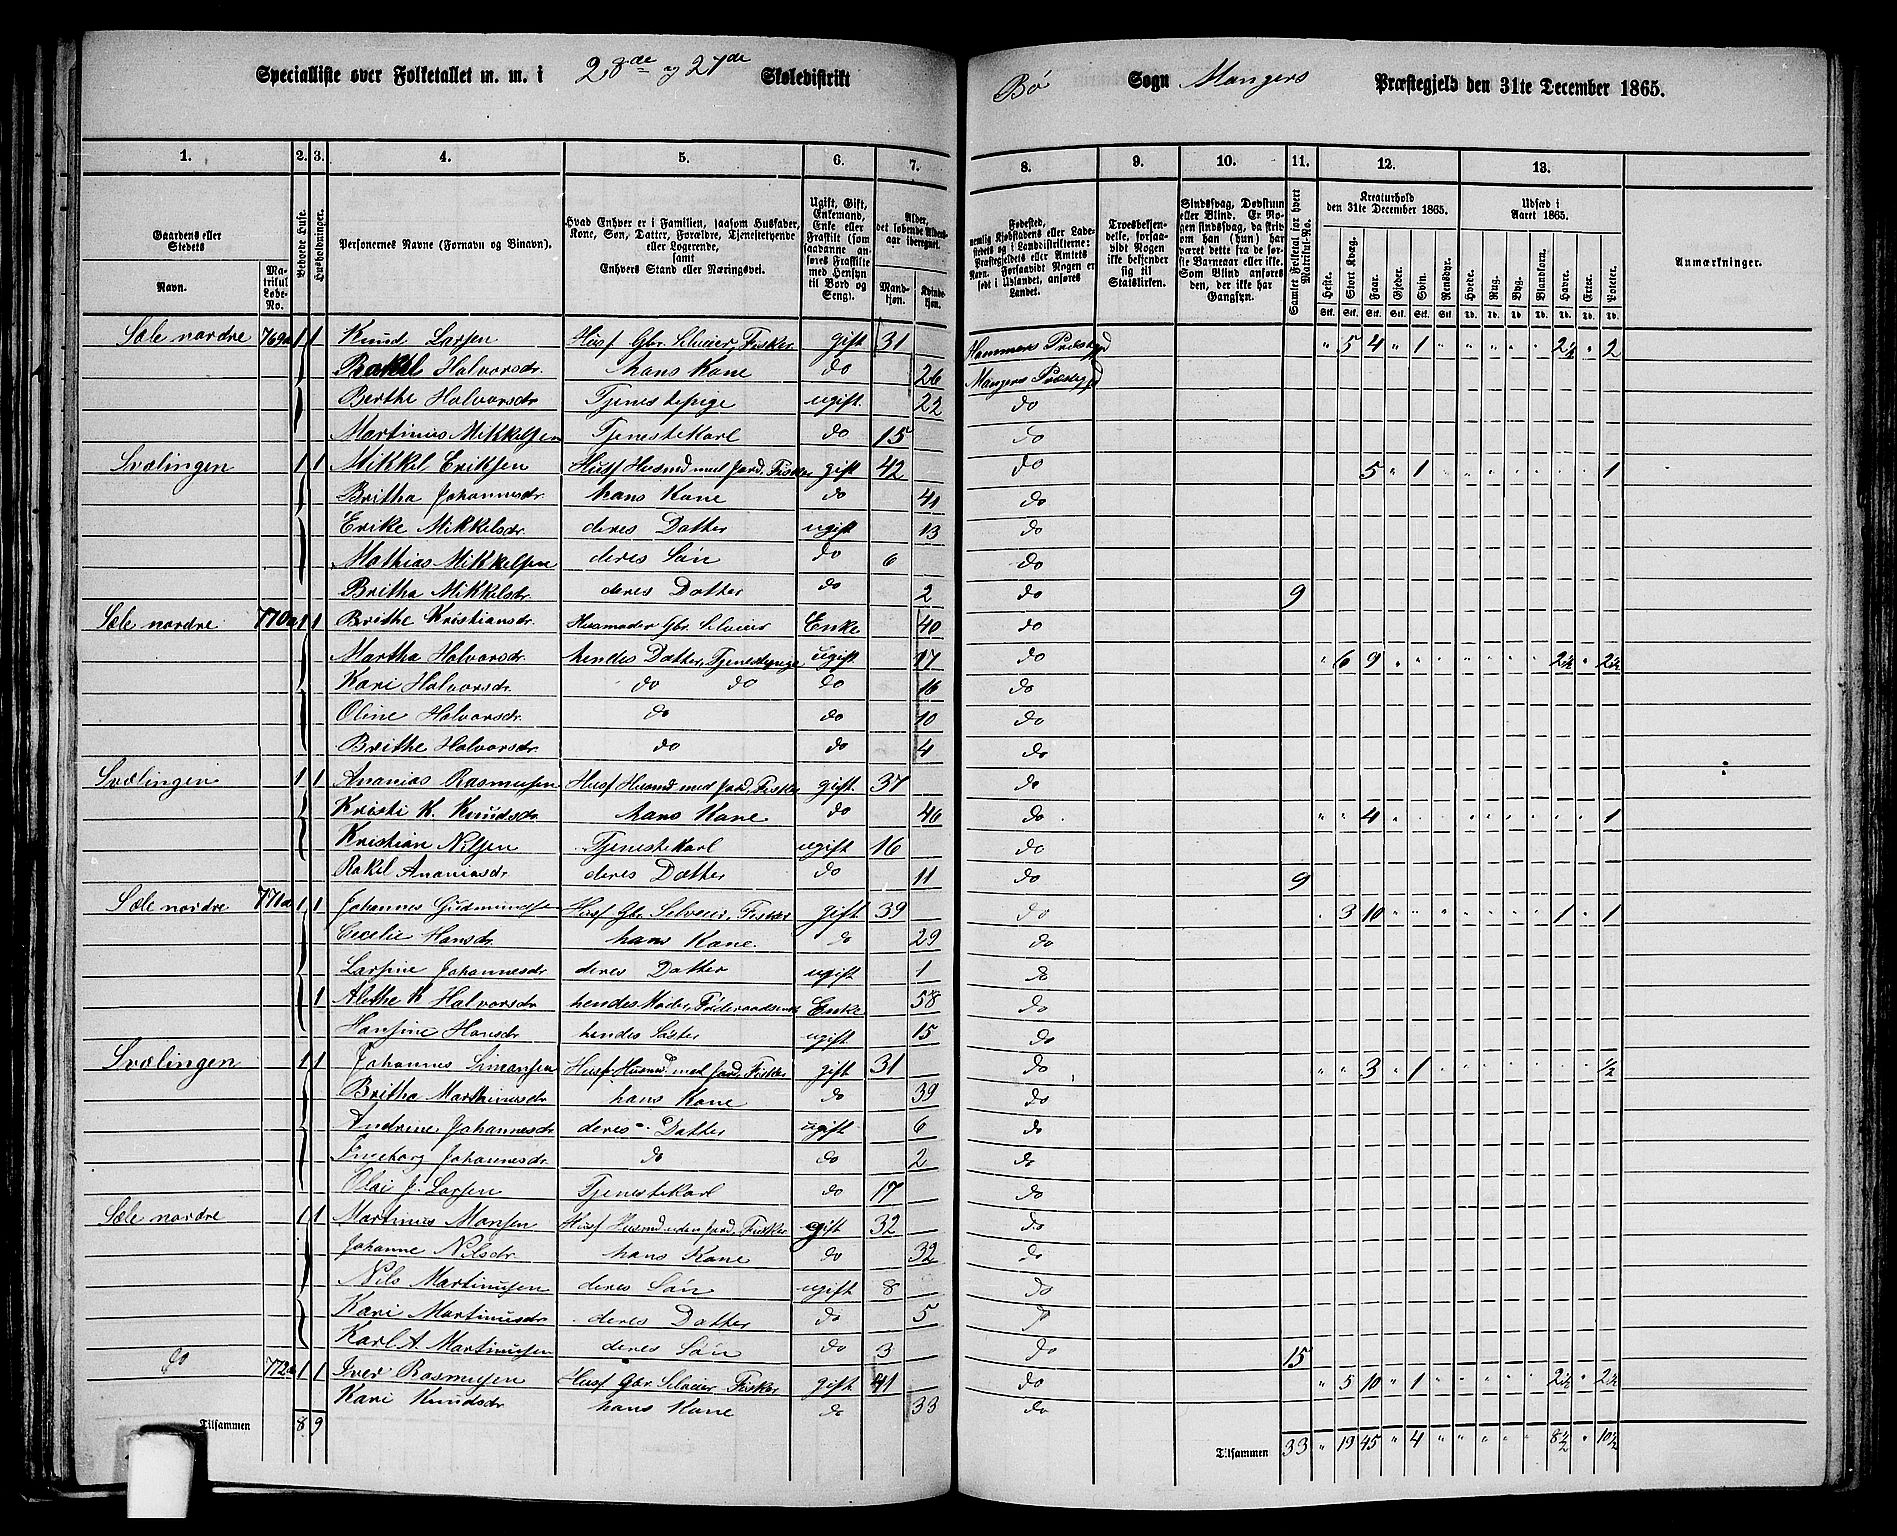 Specialliste over Folketallet m. m. i 28de og 27de Skoledistrikt
Bö Sogn Mangers Præstegjeld den 31te December 1865.
1. 2. 3. 4. 5. 6. 7. 8. 9. 10. 11. 12. 13.
Gaardens eller Stedets Navn. Matrikul Løbe-No.
Beboede Huse. Husholdninger.
Personernes Navne (Fornavn og Binavn).
Hvad Enhver er i Familien, saasom Husfader, Kone, Søn, Datter, Forældre, Tjenestetyende eller Logerende, samt Enhvers Stand eller Næringsvei.
Ugift, Gift, Enkemand, Enke eller Fraskilt (som saadanne anføres Fraskilte med Hensyn til Bord og Seng).
Alder, det løbende Alders-aar iberegnet. Mandkjøn. Kvindekjøn.
Fødested, nemlig Kjøbstadens eller Ladestedets og i Landdistrikterne: Præstegjeldets eller Amtets Navn. Forsaavidt Nogen er født i Udlandet, anføres Landet.
Troesbekjendelse, forsaavidt Nogen ikke bekjender sig til Statskirken.
Sindssvag, Døvstum eller Blind. Er Nogen sindssvag, da skrives om han (hun) har været dette fra de første Barneaar eller ikke. Som Blind anføres den, der ikke har Gangsyn.
Samlet Folketal for hvert Matrikul-No.
Kreaturhold den 31te December 1865. Heste. Stort Kvæg. Faar. Gjeder. Svin. Rensdyr.
Udsæd i Aaret 1865. Hvede. Rug. Byg. Blandkorn. Havre. Erter. Poteter.
Anmærkninger.
Sæle nordre 769a 1 1 Knud Larsen Husf Gbr. Selveier, Fisker gift 31 Hammers Præstegjd " 5 4 " 1 " " " " " 2½ " 2
Rakel Halvorsdr hans Kone do 26 Mangers Præstegjd
Berthe Halvorsdr Tjenestepige ugift 22 do
Martinus Mikkelsen Tjenestekarl do 15 do
Svælingen 1 1 Mikkel Eriksen Husf Husmd med Jord, Fisker gift 42 do 5 " 1 " " " " " " " 1
Britha Johannesdr. hans Kone do 41 do
Erike Mikkelsdr. deres Datter ugift 13 do
Mathias Mikkelsen deres Sön do 6 do
Britha Mikkelsdr. deres Datter do 2 do 9
Sæle nordre 770a 1 1 Brithe Kristiansdr. Husmoder Gbr. Selveier Enke 40 do
Martha Halvorsdr. hendes Datter, Tjenestepige ugift 17 do " 6 9 " " " " " " " 2½ " 2½
Kari Halvorsdr. do do do 16 do
Oline Halvorsdr do do 10 do
Brithe Halvorsdr. do do 4 do
Svælingen 1 1 Ananias Rasmusen Husf Husmd med Jord, Fisker gift. 37 do
Kristi K. Knudsdr. hans Kone do 46 do " " 4 " " " " " " " " " 1
Kristian Nilsen Tjenestekarl ugift 16 do
Rakel Ananiasdr deres Datter do 11 do 9
Sæle nordre 771a 1 1 Johannes Gudmundsen Husf Gbr. Selveier, Fisker gift 39 do " 3 10 " " " " " " " 1 " 1
Cecelie Hansdr. hans Kone. do 29 do
Larsine Johannesdr deres Datter ugift 1 do
1 Alethe K Halvorsdr hendes Moder, Föderaadsenke Enke 58 do
Hansine Hansdr hendes Söster ugift 15 do
Svælingen 1 1 Johannes Simonsen Husf Husmd med Jord, Fisker gift 31 do " " 3 " 1 " " " " " " " ½
Britha Marthinusdr hans Kone do 39 do
Andrine Johannesdr. deres Datter ugift 6 do
Ingeborg Johannesdr do do 2 do
Olai J. Larsen Tjenestekarl do 17 do
Sæle nordre 1 1 Martinus Monsen Husf Husmd uden Jord, Fisker gift 32 do
Johanne Nilsdr. hans Kone do 32 do
Nils Martinusen deres Sön ugift 8 do
Kari Martinusdr deres Datter do 5 do
Karl A. Martinusen deres Sön do 3 do 15
do 772a 1 1 Iver Rasmusen Husf Gbr. Selveier Fisker gift 41 do " 5 10 " 1 " " " " " 2½ " 2½
Kari Knudsdr hans Kone do 33 do
Tilsammen 8 9 Tilsammen 33 " 19 45 " 4 " " " " " 8½ " 10½